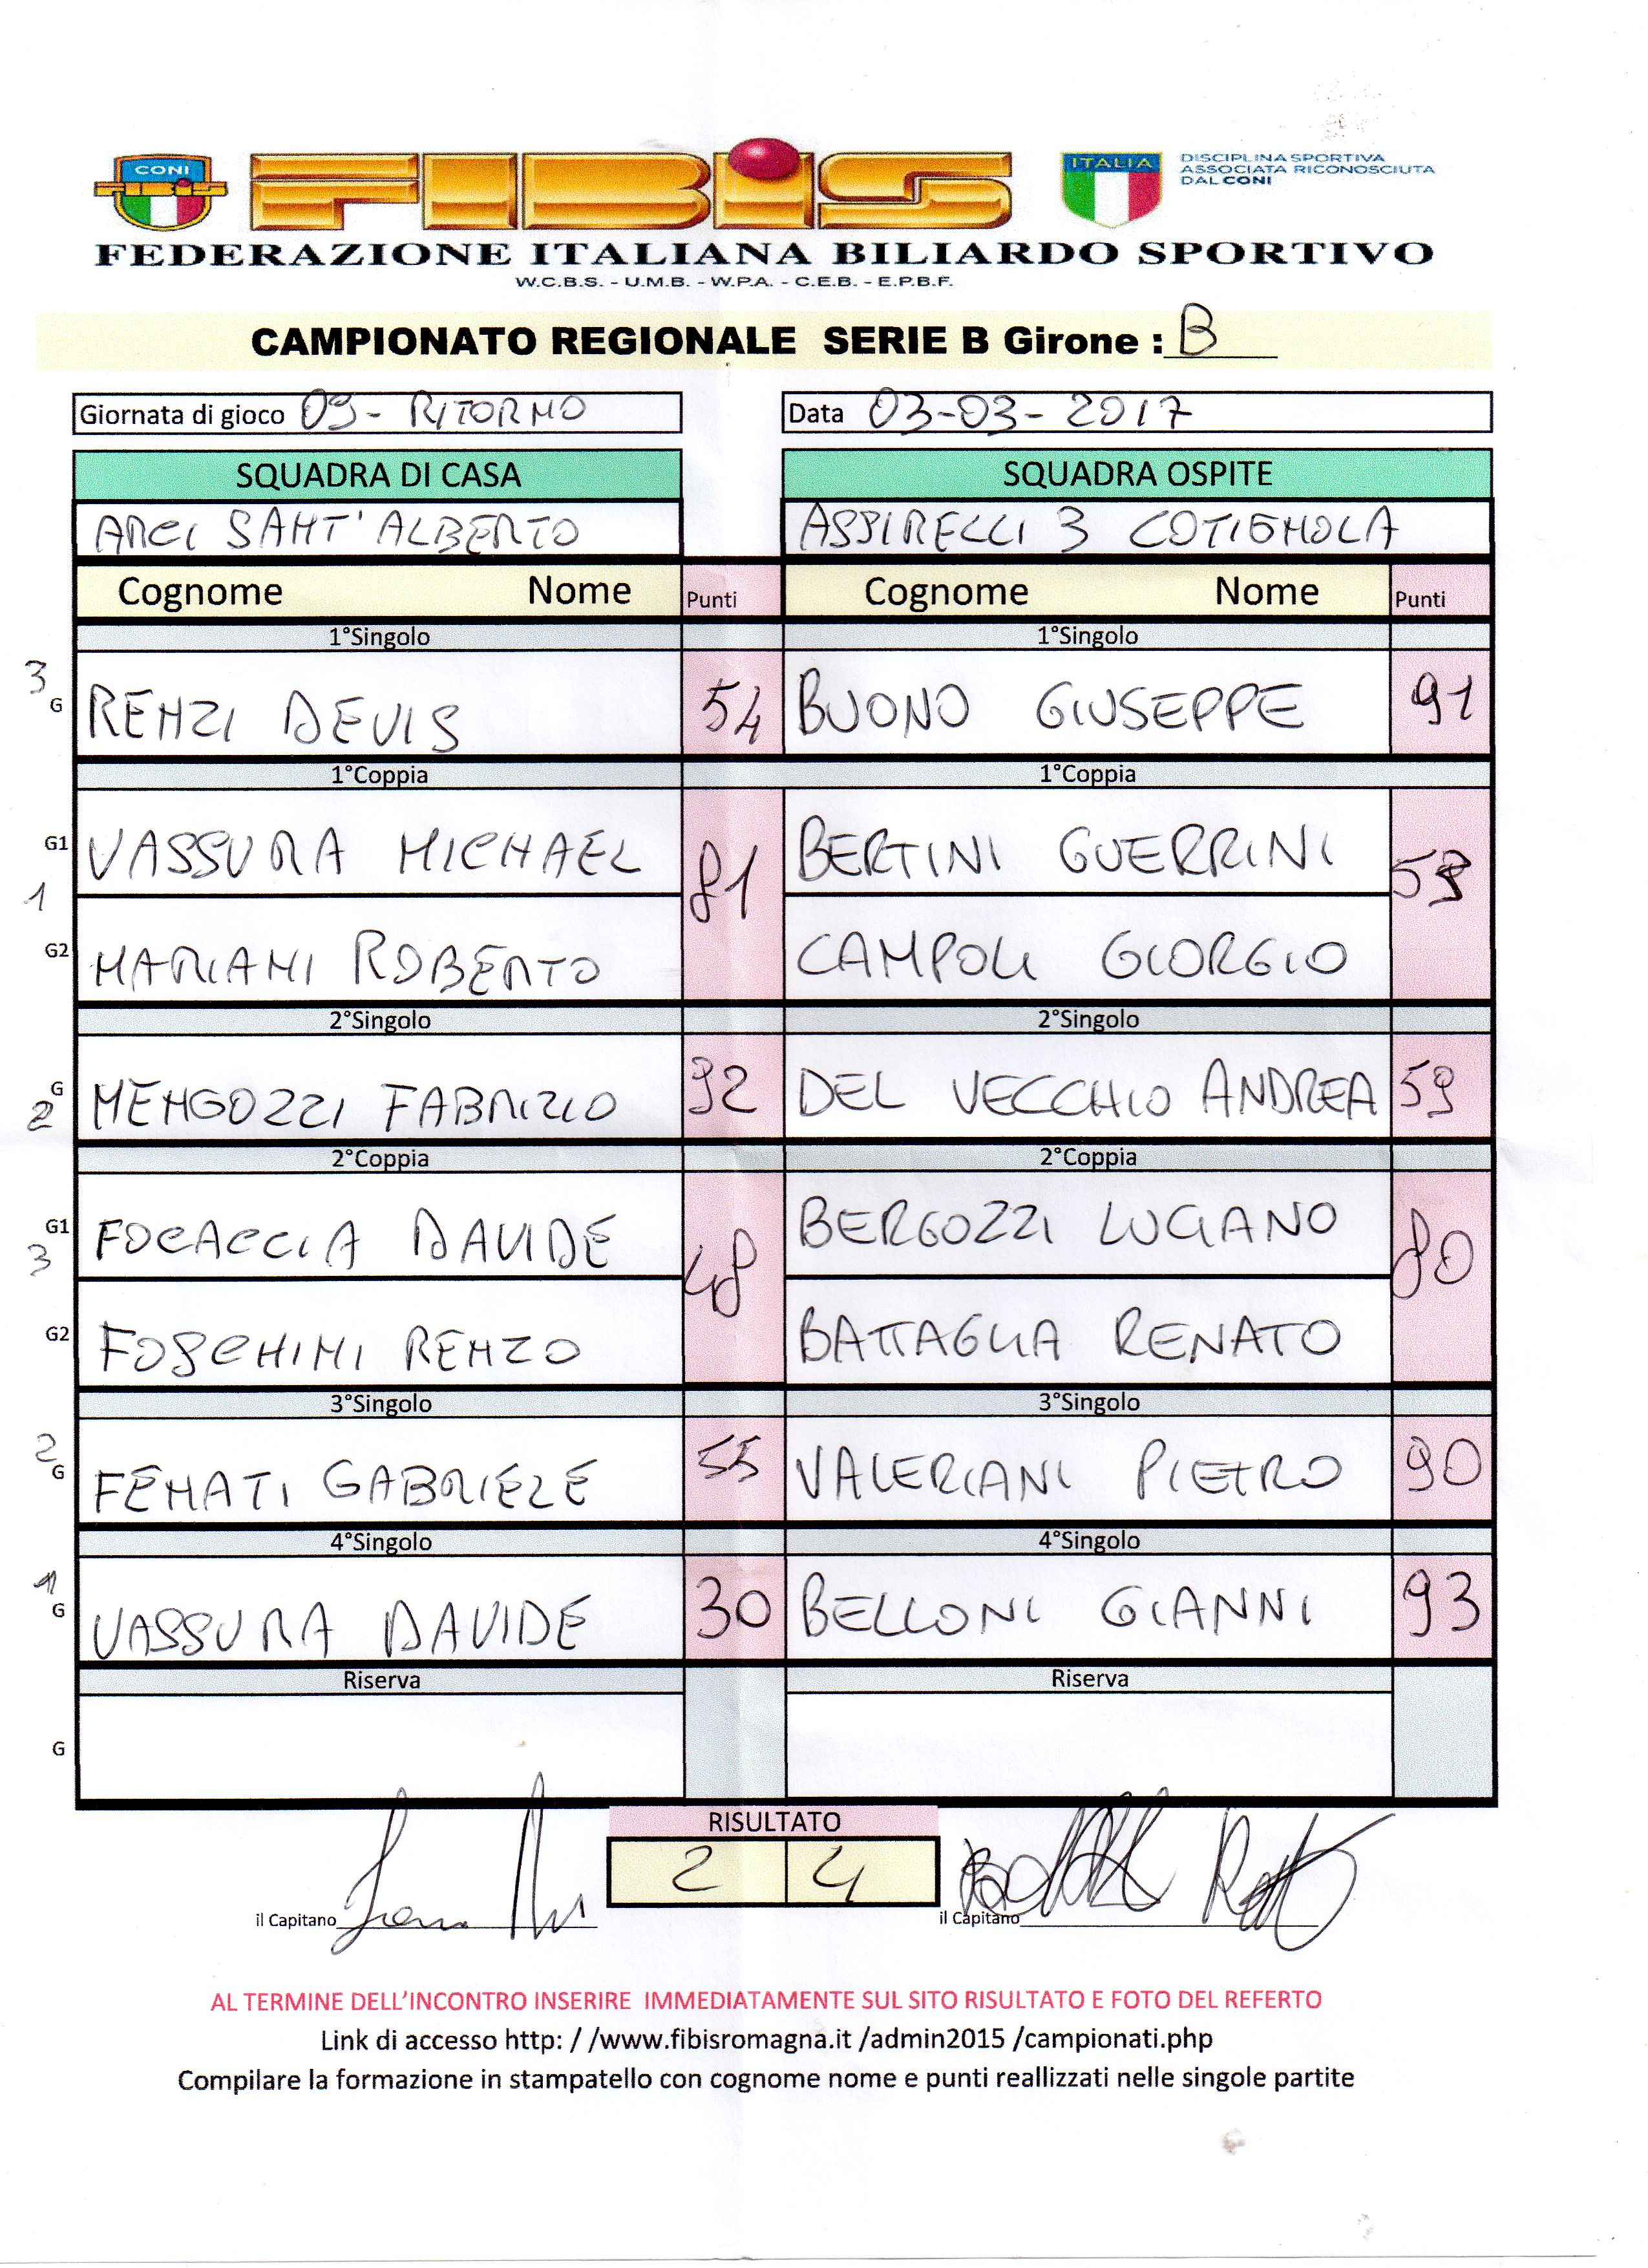 CONI
FIBiS
ITALIA
DISCIPLINA SPORTIVA
ASSOCIATA RICONOSCIUTA
DAL CONI
FEDERAZIONE ITALIANA BILIARDO SPORTIVO
W.C.B.S. - U.M.B. - W.P.A. - C.E.B. - E.P.B.F.
CAMPIONATO REGIONALE SERIE B Girone : B
Giornata di gioco 09 - RITORNO Data 03-03-2017
SQUADRA DI CASA SQUADRA OSPITE
ARCI SANT'ALBERTO ASSIRELLI 3 COTIGNOLA
Cognome Nome Punti Cognome Nome Punti
1°Singolo 1°Singolo
3 G RENZI DEVIS 54 BUONO GIUSEPPE 91
1°Coppia 1°Coppia
G1 VASSURA MICHAEL 81 BERTINI GUERRINI
1
G2 MARIANI ROBERTO CAMPOLI GIORGIO
2°Singolo 2°Singolo
G 2 MENGOZZI FABRIZIO 92 DEL VECCHIO ANDREA 59
2°Coppia 2°Coppia
G1 FOCACCIA DAVIDE 48 BERGOZZI LUCIANO 80
3
G2 FOSCHINI RENZO BATTAGLIA RENATO
3°Singolo 3°Singolo
2 G FENATI GABRIELE 55 VALERIANI PIETRO 90
4°Singolo 4°Singolo
1 G VASSURA DAVIDE 30 BELLONI GIANNI 93
Riserva Riserva
G
RISULTATO
2 4
il Capitano il Capitano
AL TERMINE DELL'INCONTRO INSERIRE IMMEDIATAMENTE SUL SITO RISULTATO E FOTO DEL REFERTO
Link di accesso http: / /www.fibisromagna.it /admin2015 /campionati.php
Compilare la formazione in stampatello con cognome nome e punti reallizzati nelle singole partite